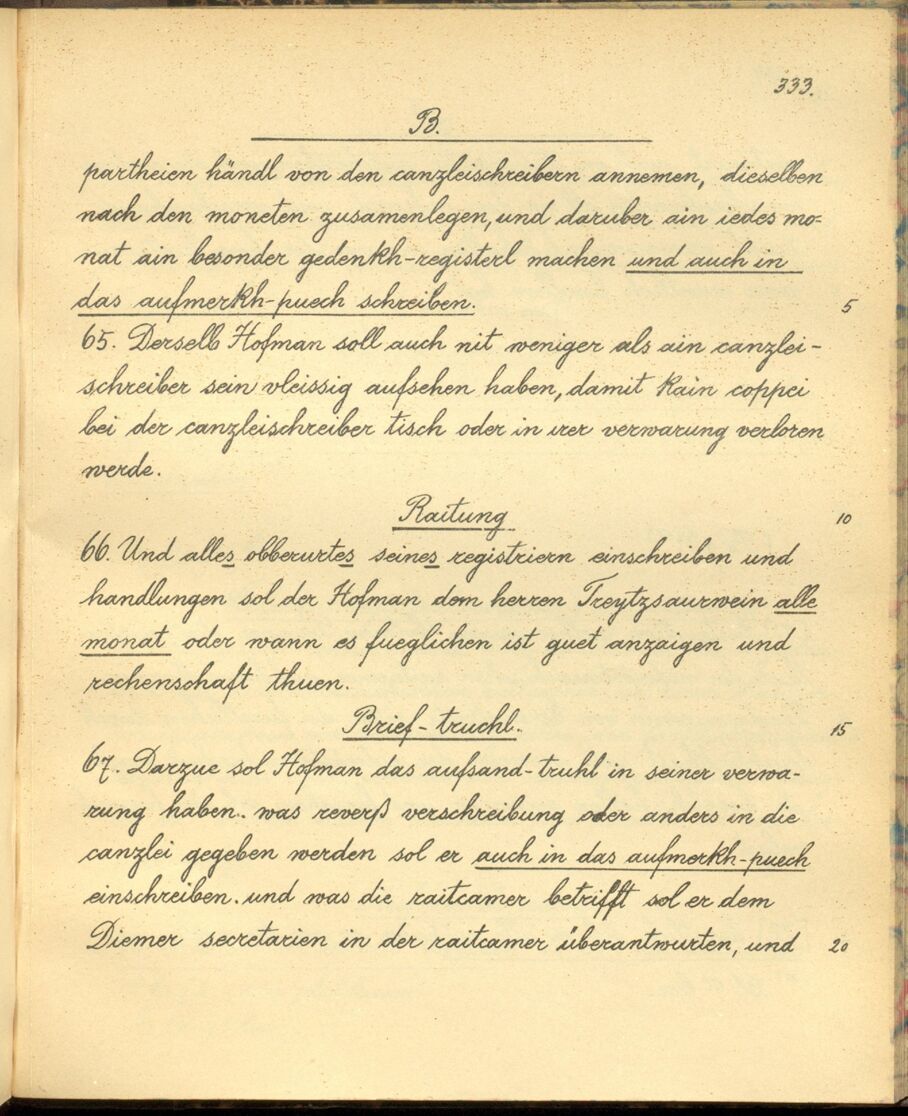 333.
B.
partheien händl von den canzleischreibern annemen, dieselben
nach den moneten zusamenlegen, und daruber ain iedes mo-
nat ain besonder gedenkh-registerl machen und auch in
das aufmerkh-puech schreiben. 5
65. Derselb Hofman soll auch nit weniger als ain canzlei-
schreiber sein vleissig aufsehen haben, damit kain coppei
bei der canzleischreiber tisch oder in irer verwarung verloren
werde.
Raitung 10
66. Und alles obberurtes seines registriern einschreiben und
handlungen sol der Hofman dem herren Treytzsaurwein alle
monat oder wann es fueglichen ist guet anzaigen und
rechenschaft thuen.
Brief-truchl. 15
67. Darzue sol Hofman das aufsand-truhl in seiner verwa-
rung haben. was reverß verschreibung oder anders in die
canzlei gegeben werden sol er auch in das aufmerkh-puech
einschreiben. und was die raitcamer betrifft sol er dem
Diemer secretarien in der raitcamer überantwurten, und 20